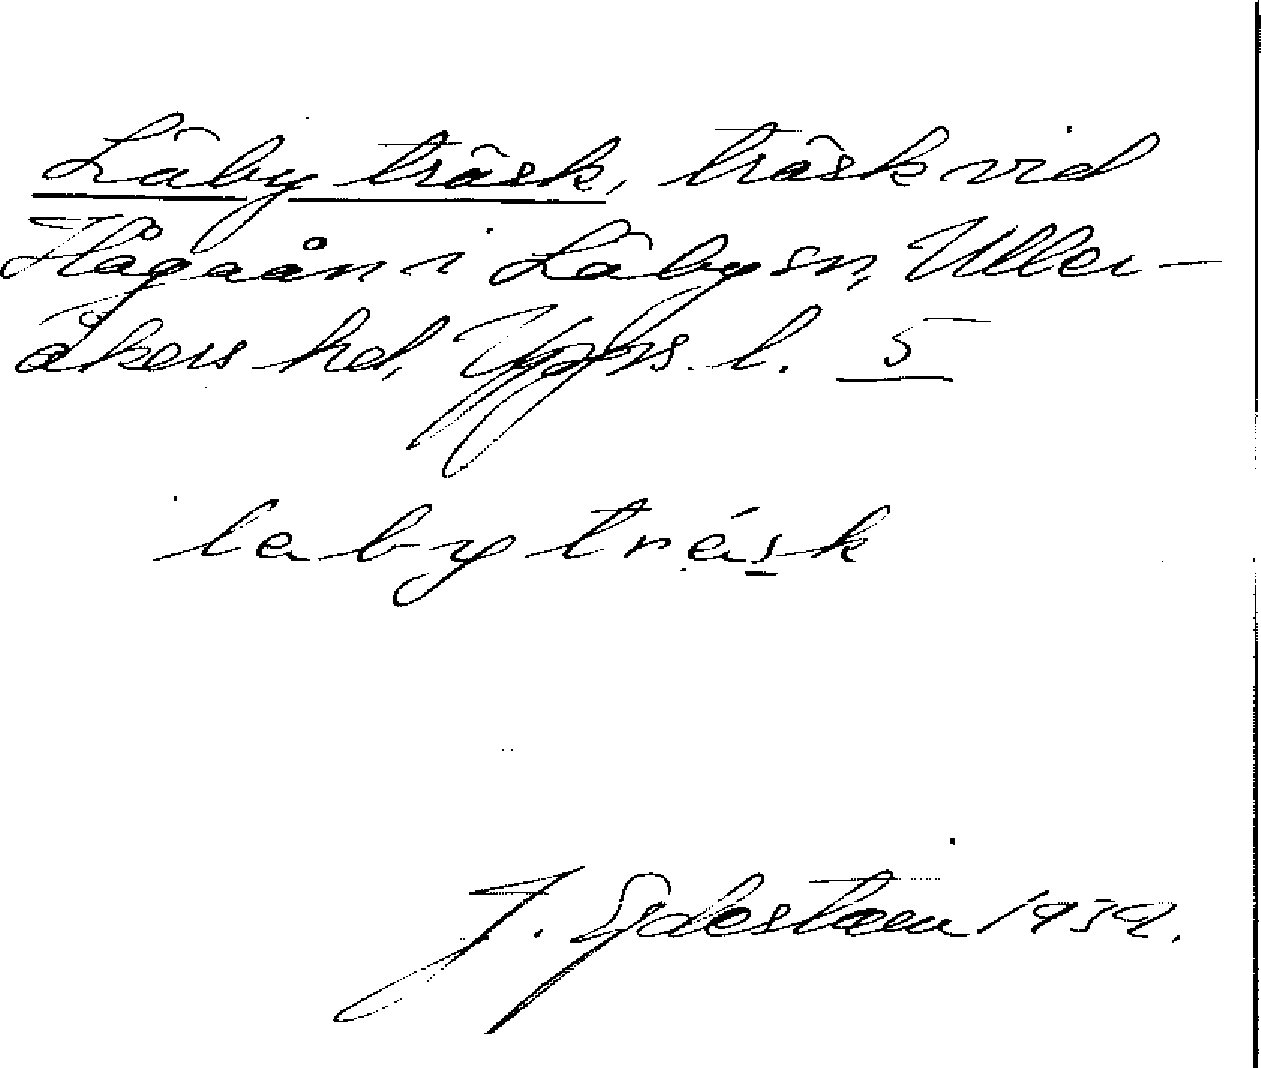 Läby träsk, träsk vid
Hågaån i Läby sn, Uller-
åkers hd, Upps. l. 5
laby träsk
J. 1939.